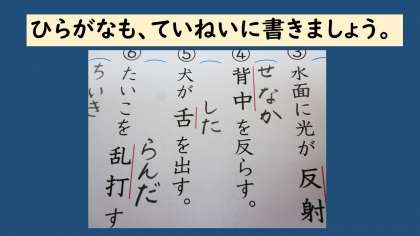 ひらがなも、ていねいに書きましょう。
③水面に光が反射
せなか
④背中を反らす。
した
⑤犬が舌を出す。
らんだ
⑥たいこを乱打す
ちいき